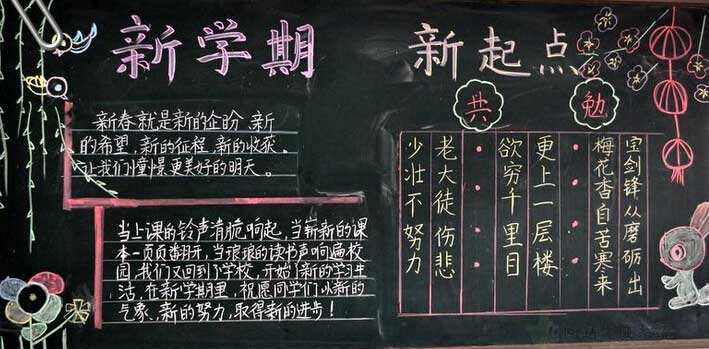 新学期
新起点
新春就是新的企盼、新
的希望、新的征程、新的收获。
让我们憧憬更美好的明天。
当上课的铃声清脆响起,当崭新的课
本一页页翻开,当琅琅的读书声响遍校
园,我们又回到了学校,开始了新的学习生
活,在新学期里,祝愿同学们以新的
气象、新的努力,取得新的进步!
共勉
宝剑锋从磨砺出
梅花香自苦寒来
更上一层楼
欲穷千里目
老大徒伤悲
少壮不努力